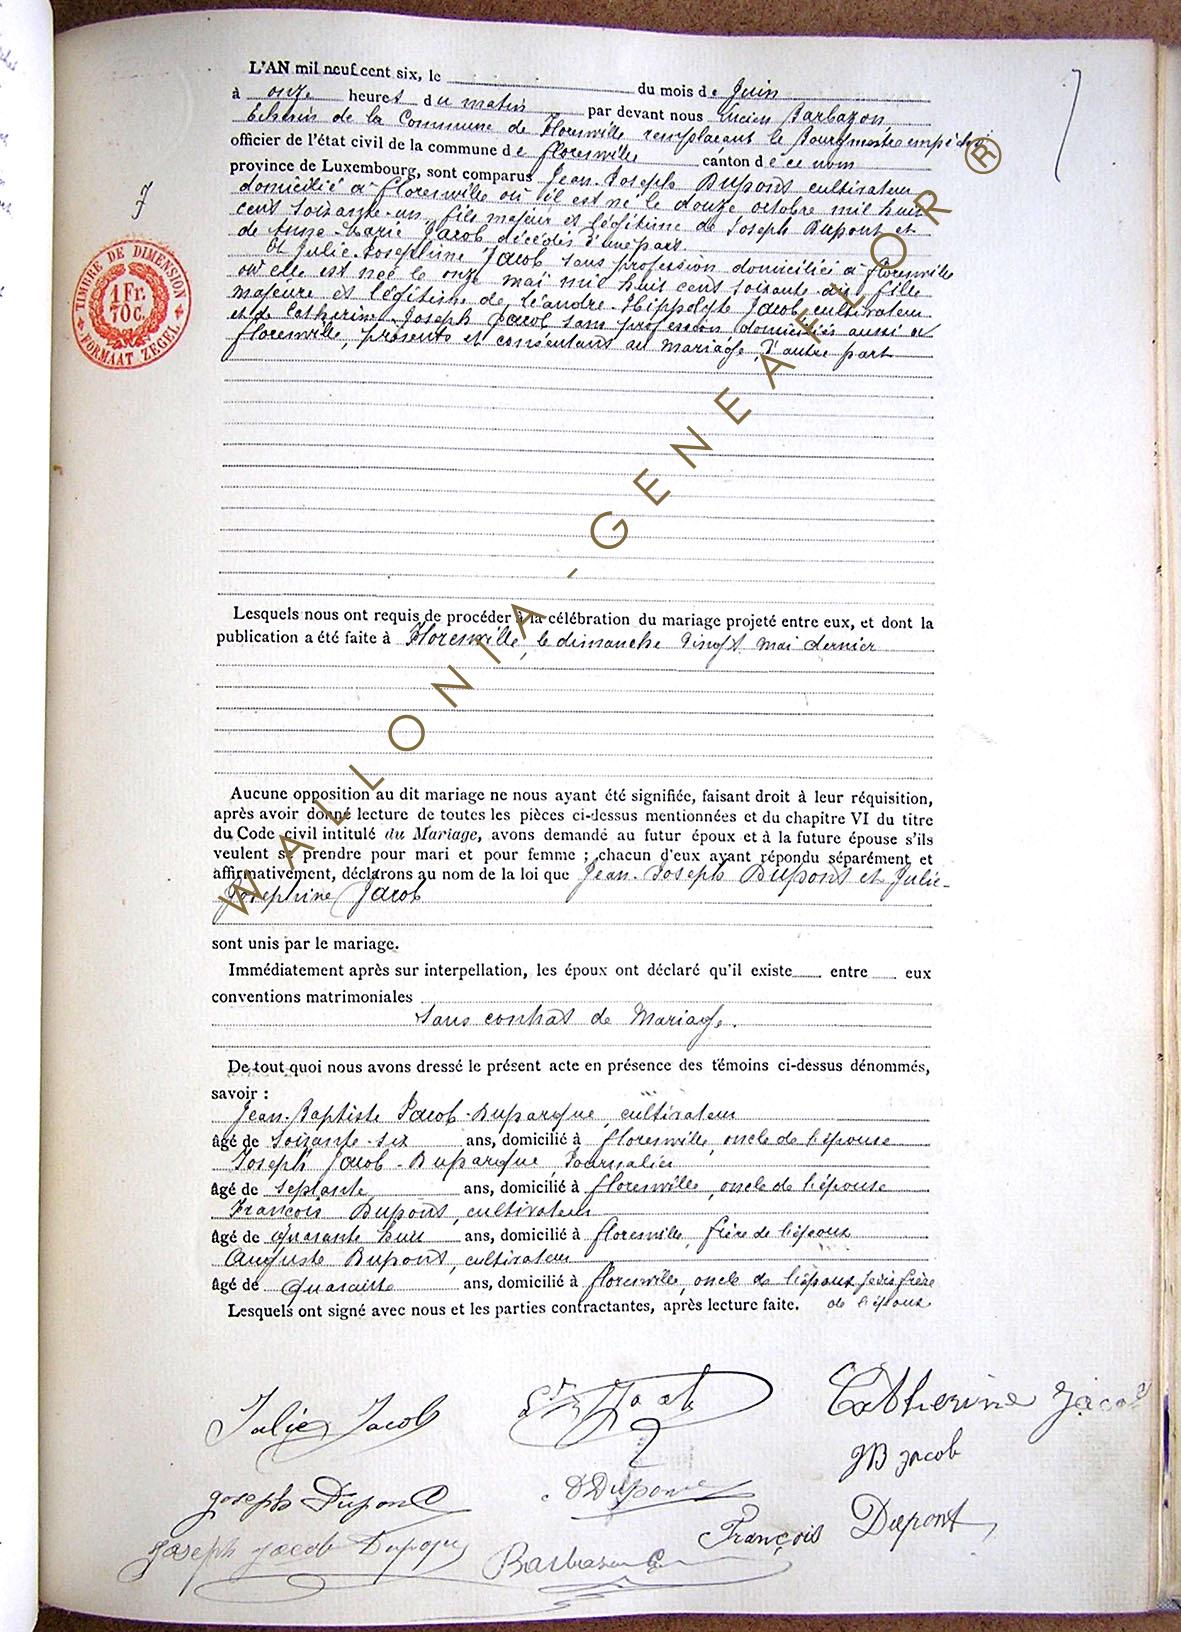 L'AN mil neuf cent six, le du mois de Juin
à onze heures du matin par devant nous Lucien Barbazon
Echevin de la Commune de Florenville remplaçant le Bourgmestre empêché
officier de l'état civil de la commune de florenville canton de ce nom
province de Luxembourg, sont comparus Jean-Joseph Dupont cultivateur
domicilié à florenville où il est né le douze octobre mil huit
cent soixante-un fils majeur et légitime de Joseph Dupont et
de Anne-Marie Jacob décédés d'une part.
Et Julie-Josephine Jacob sans profession domiciliée à florenville
où elle est née le onze mai mil huit cent soixante-dix fille
majeure et légitime de Léandre-Hippolyte Jacob cultivateur
et de Catherine-Joseph Jacob sans profession domiciliés aussi à
florenville, présents et consentants au mariage, d'autre part
7
TIMBRE DE DIMENSION
1 Fr.
70 C.
FORMAAT ZEGEL
Lesquels nous ont requis de procéder à la célébration du mariage projeté entre eux, et dont la
publication a été faite à Florenville, le dimanche vingt mai dernier
Aucune opposition au dit mariage ne nous ayant été signifiée, faisant droit à leur réquisition,
après avoir donné lecture de toutes les pièces ci-dessus mentionnées et du chapitre VI du titre
du Code civil intitulé du Mariage, avons demandé au futur époux et à la future épouse s'ils
veulent se prendre pour mari et pour femme ; chacun d'eux ayant répondu séparément et
affirmativement, déclarons au nom de la loi que Jean-Joseph Dupont et Julie-
Josephine Jacob
sont unis par le mariage.
Immédiatement après sur interpellation, les époux ont déclaré qu'il existe entre eux
conventions matrimoniales
Sans contrat de Mariage.
De tout quoi nous avons dressé le présent acte en présence des témoins ci-dessus dénommés,
savoir :
Jean-Baptiste Jacob-Duparque, cultivateur
âgé de soixante-six ans, domicilié à florenville, oncle de l'épouse
Joseph Jacob-Duparque, Journalier
âgé de septante ans, domicilié à florenville, oncle de l'épouse
François Dupont, cultivateur
âgé de quarante huit ans, domicilié à florenville, frère de l'époux
Auguste Dupont, cultivateur
âgé de quarante ans, domicilié à florenville, oncle de l'époux frère
Lesquels ont signé avec nous et les parties contractantes, après lecture faite. de l'époux
Julie Jacob
Jacob
Catherine Jacob
JB Jacob
Joseph Dupont
Dupont
François Dupont
Joseph Jacob
Barbazon
WALLONIA-GENEAFLOR ®